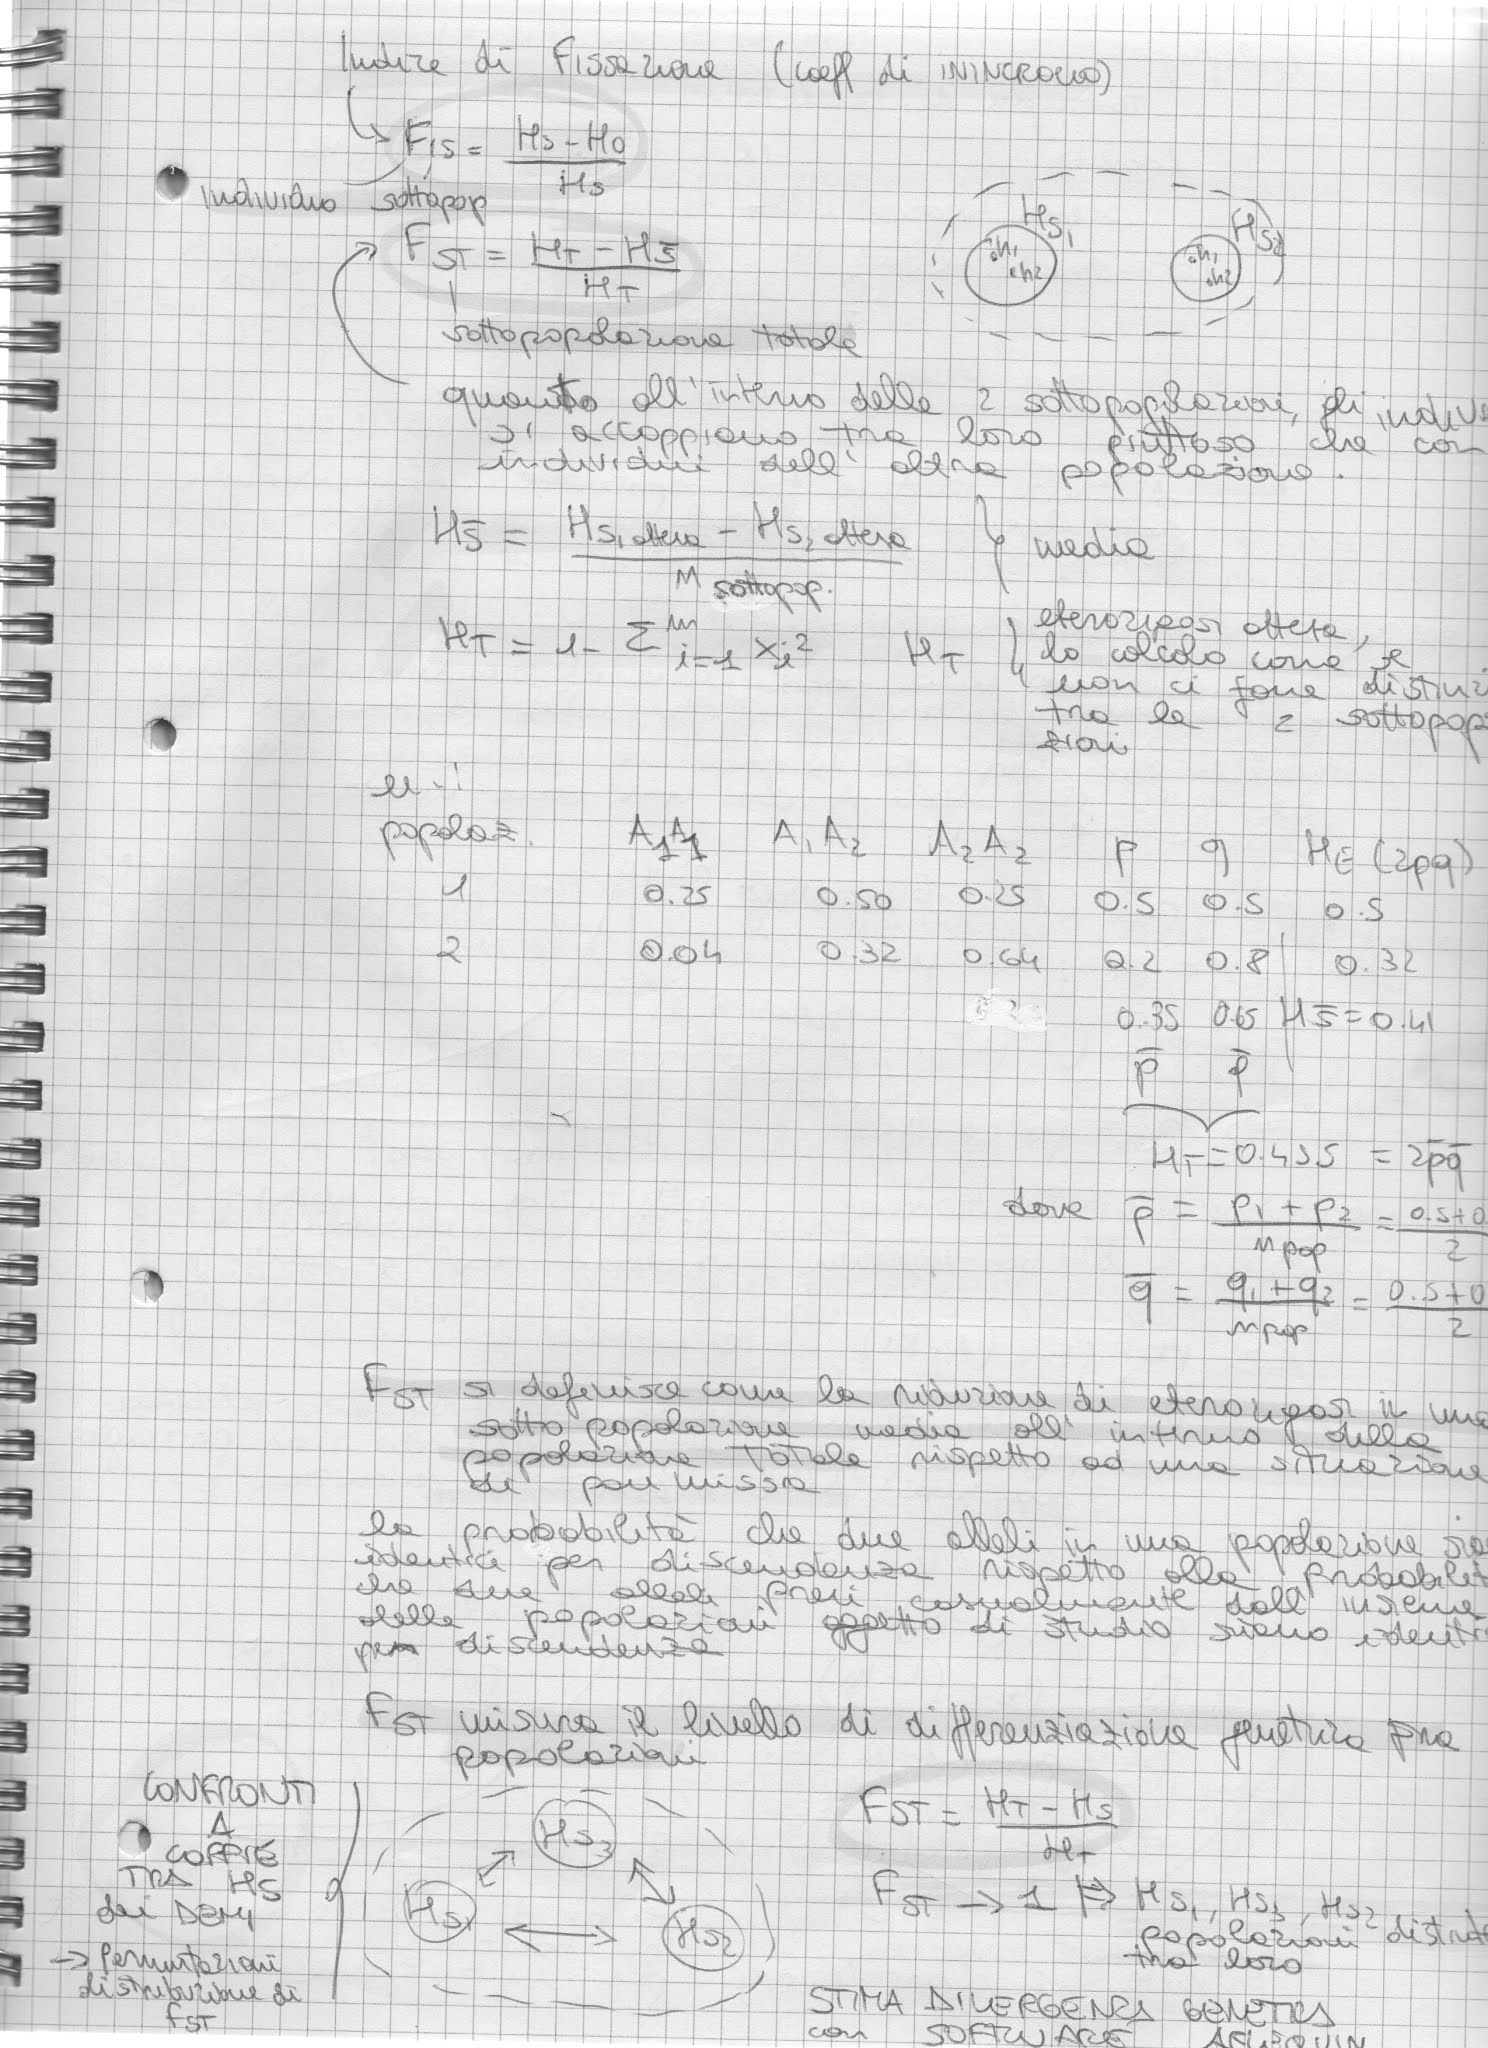 Indice di Fissazione (coeff di ININCROCIO)
FIS = HS - HO / HS
individuo sottopop
FST = HT - HS̄ / HT
HS1 HS2
h1 h2 h1 h2
sottopopolazione totale
quanto all'interno delle 2 sottopopolazioni, gli indivi
si accoppiano tra loro piuttosto che con
individui dell'altra popolazione.
HS̄ = HS1 attesa - HS2 attesa / N sottopop. } media
HT = 1 - Σ m i=1 xi² HT } eterozigosi attesa,
lo calcolo come se
non ci fosse distinzi
tra le 2 sottopop
zioni
popolaz. A1A1 A1A2 A2A2 p q HE (2pq)
1 0.25 0.50 0.25 0.5 0.5 0.5
2 0.04 0.32 0.64 0.2 0.8 0.32
0.35 0.65 HS̄ = 0.41
p̄ q̄
HT = 0.455 = 2p̄q̄
dove p̄ = p1 + p2 / n pop = 0.5+0. / 2
q̄ = q1 + q2 / n pop = 0.5+0 / 2
FST si definisce come la riduzione di eterozigosi in una
sottopopolazione media all'interno della
popolazione Totale rispetto ad una situazione
di panmissia
la probabilità che due alleli in una popolazione sia
identici per discendenza rispetto alla probabilit
che due alleli presi casualmente dall'insieme
delle popolazioni oggetto di studio siano identi
per discendenza
FST misura il livello di differenziazione genetica fra
popolazioni
CONFRONTI
A
COPPIE
TRA HS
dei DEMI
→ permutazioni
distribuzione di
FST
HS3
HS1 HS2
FST = HT - HS / HT
FST → 1 ⇒ HS1, HS3, HS2
popolazioni distint
tra loro
STIMA DIVERGENZA GENETICA
con SOFTWARE ARLEQUIN